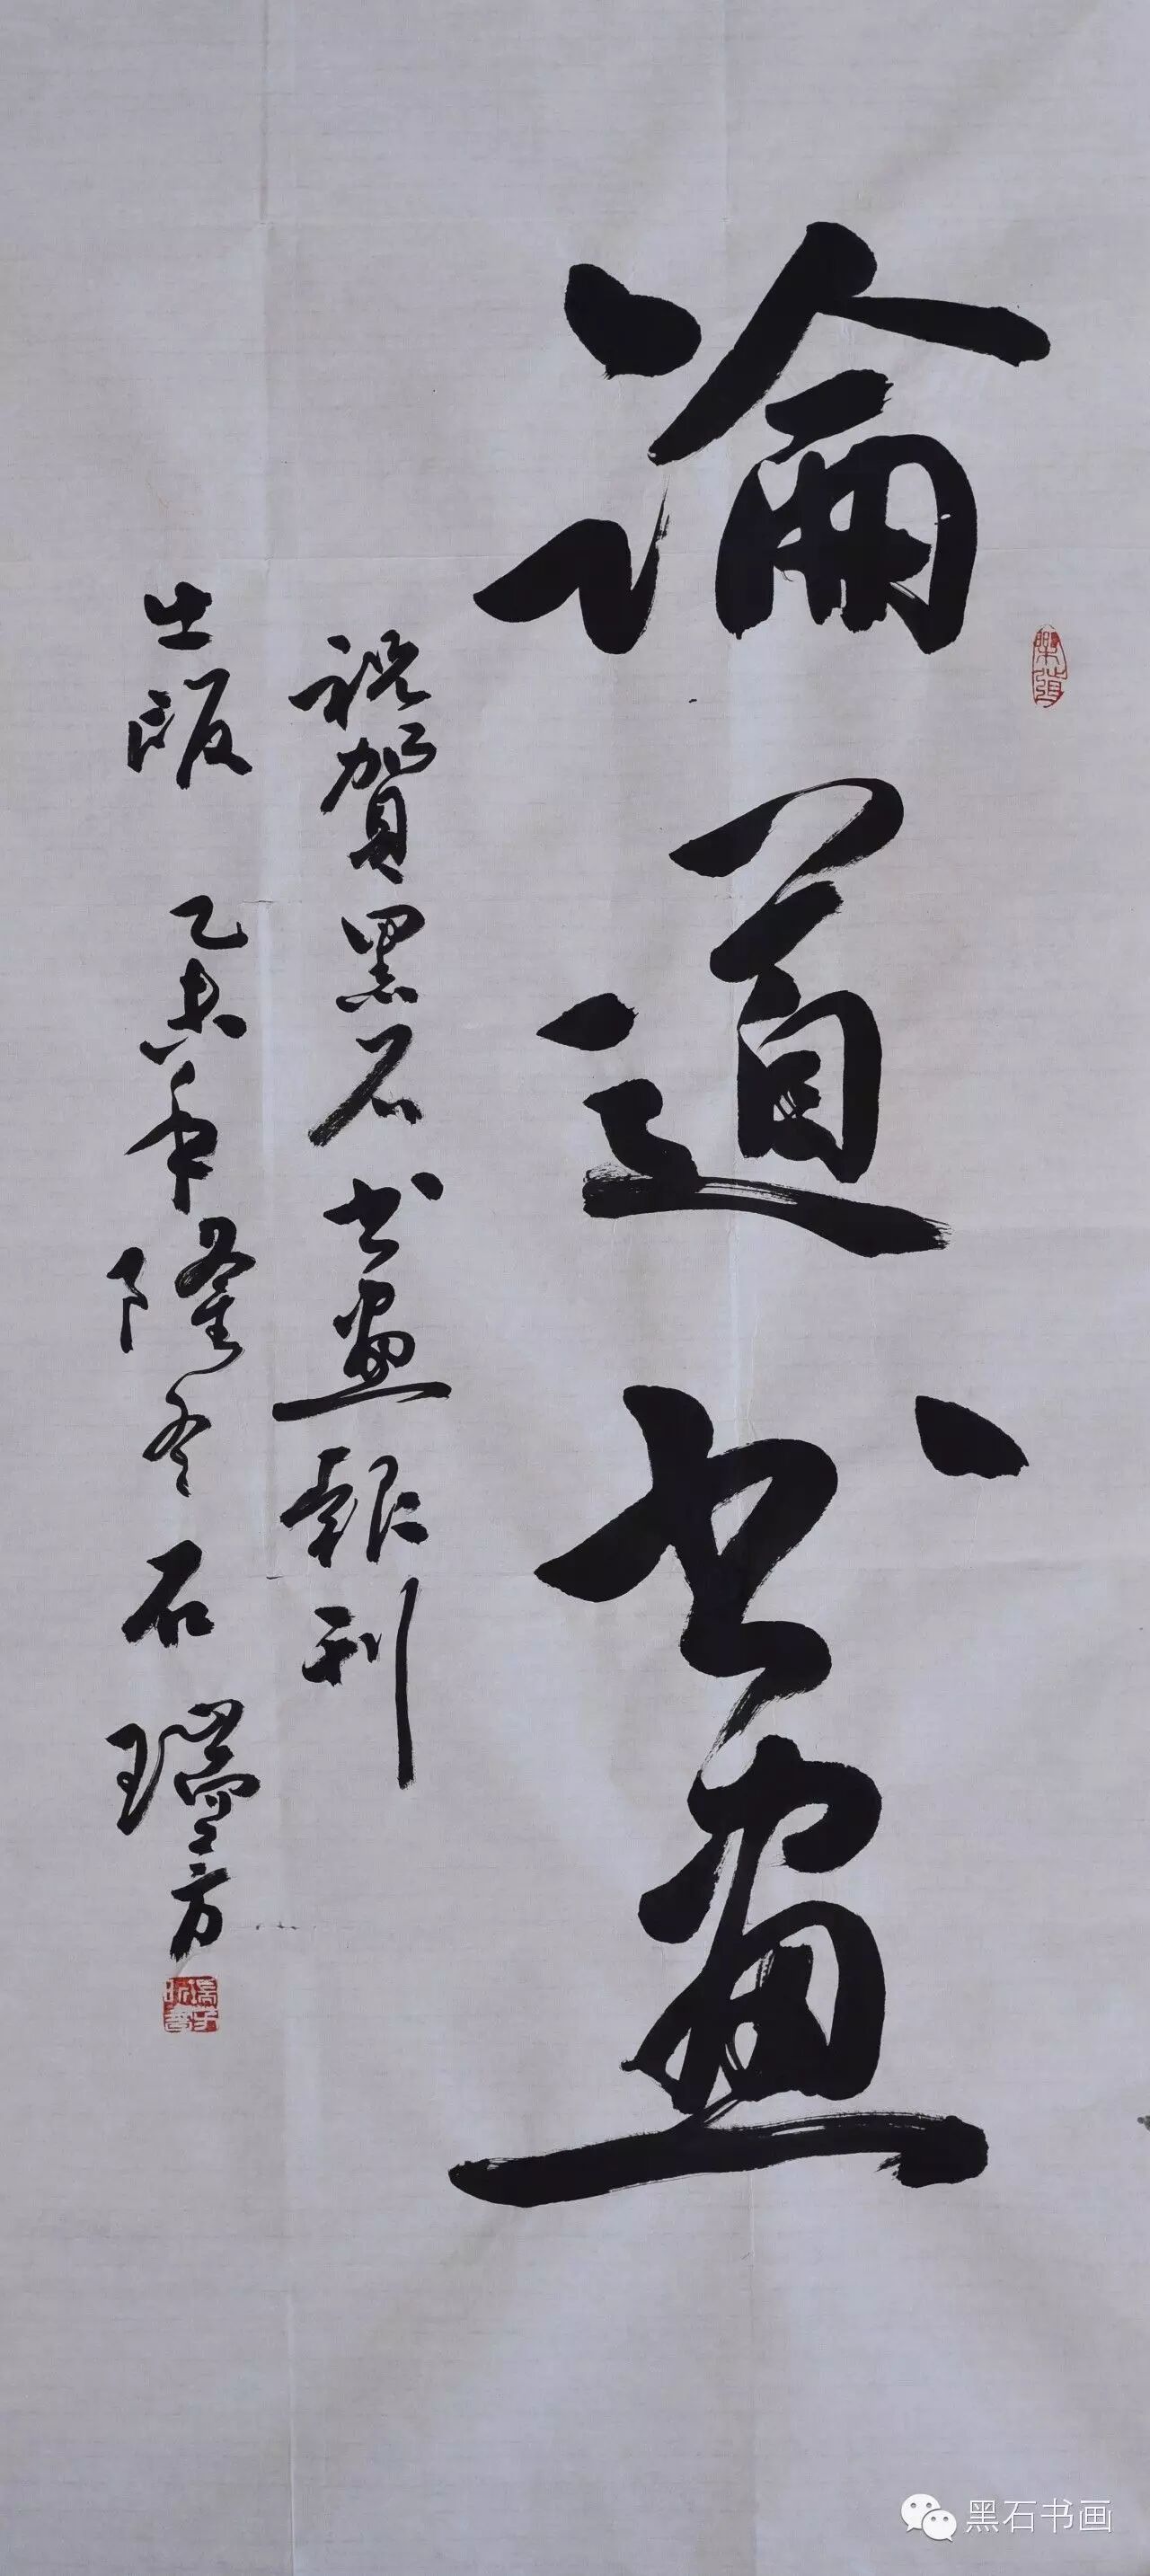 論道书画
祝賀黑石书画報刊
出版 乙未年隆冬 石瑞方
黑石书画